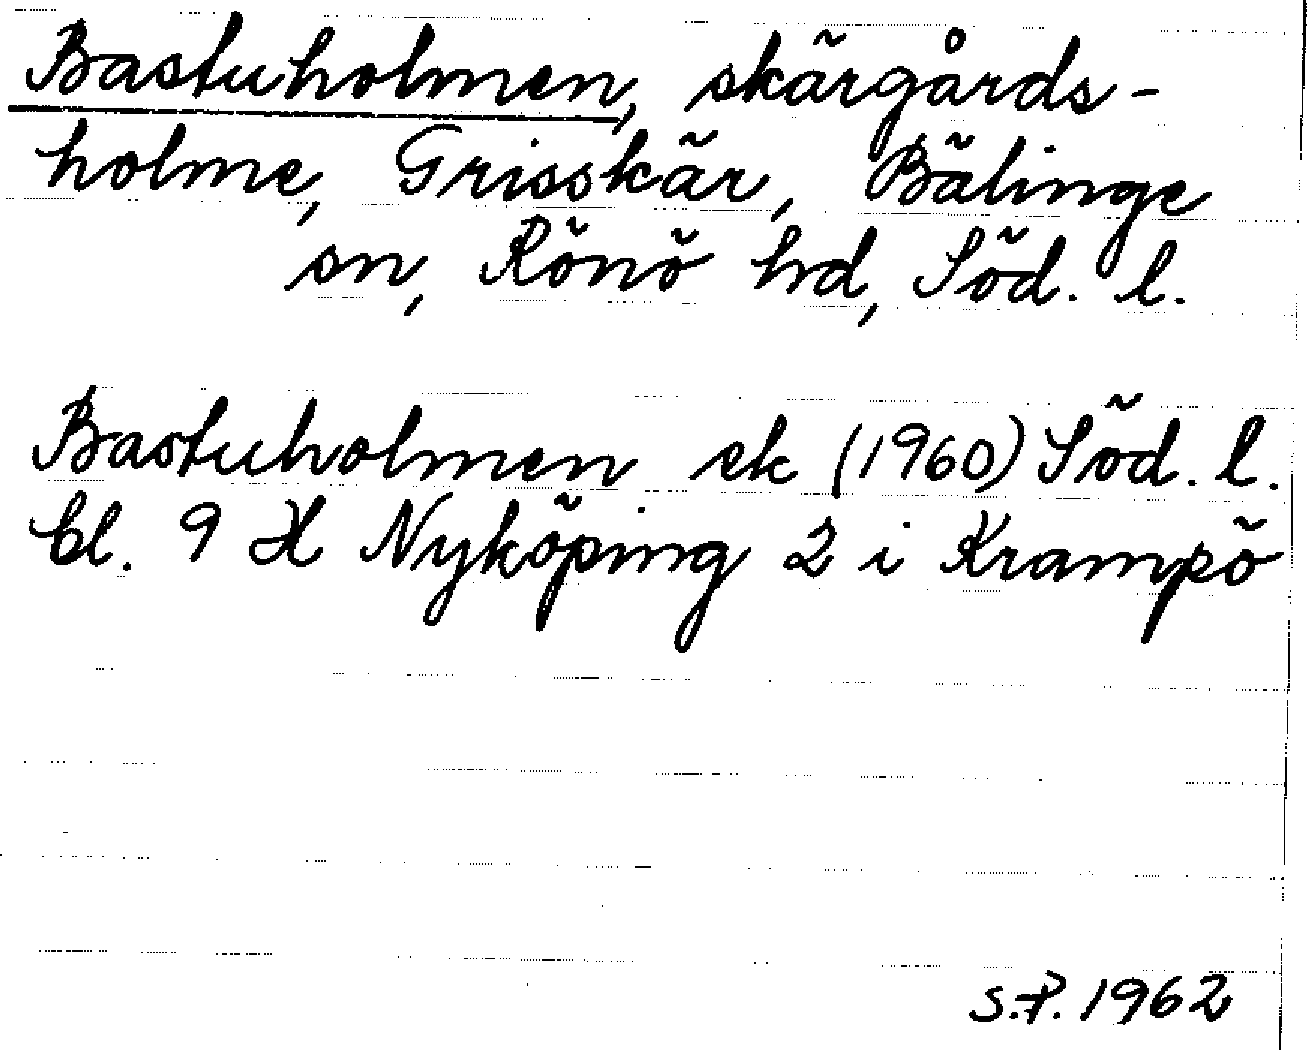 Bastuholmen, skärgårds-
holme, Grisskär, Bälinge
sn, Rönö hd, Söd. l.
Bastuholmen ek (1960) Söd. l.
bl. 9 H Nyköping 2 i Krampö
S.P. 1962